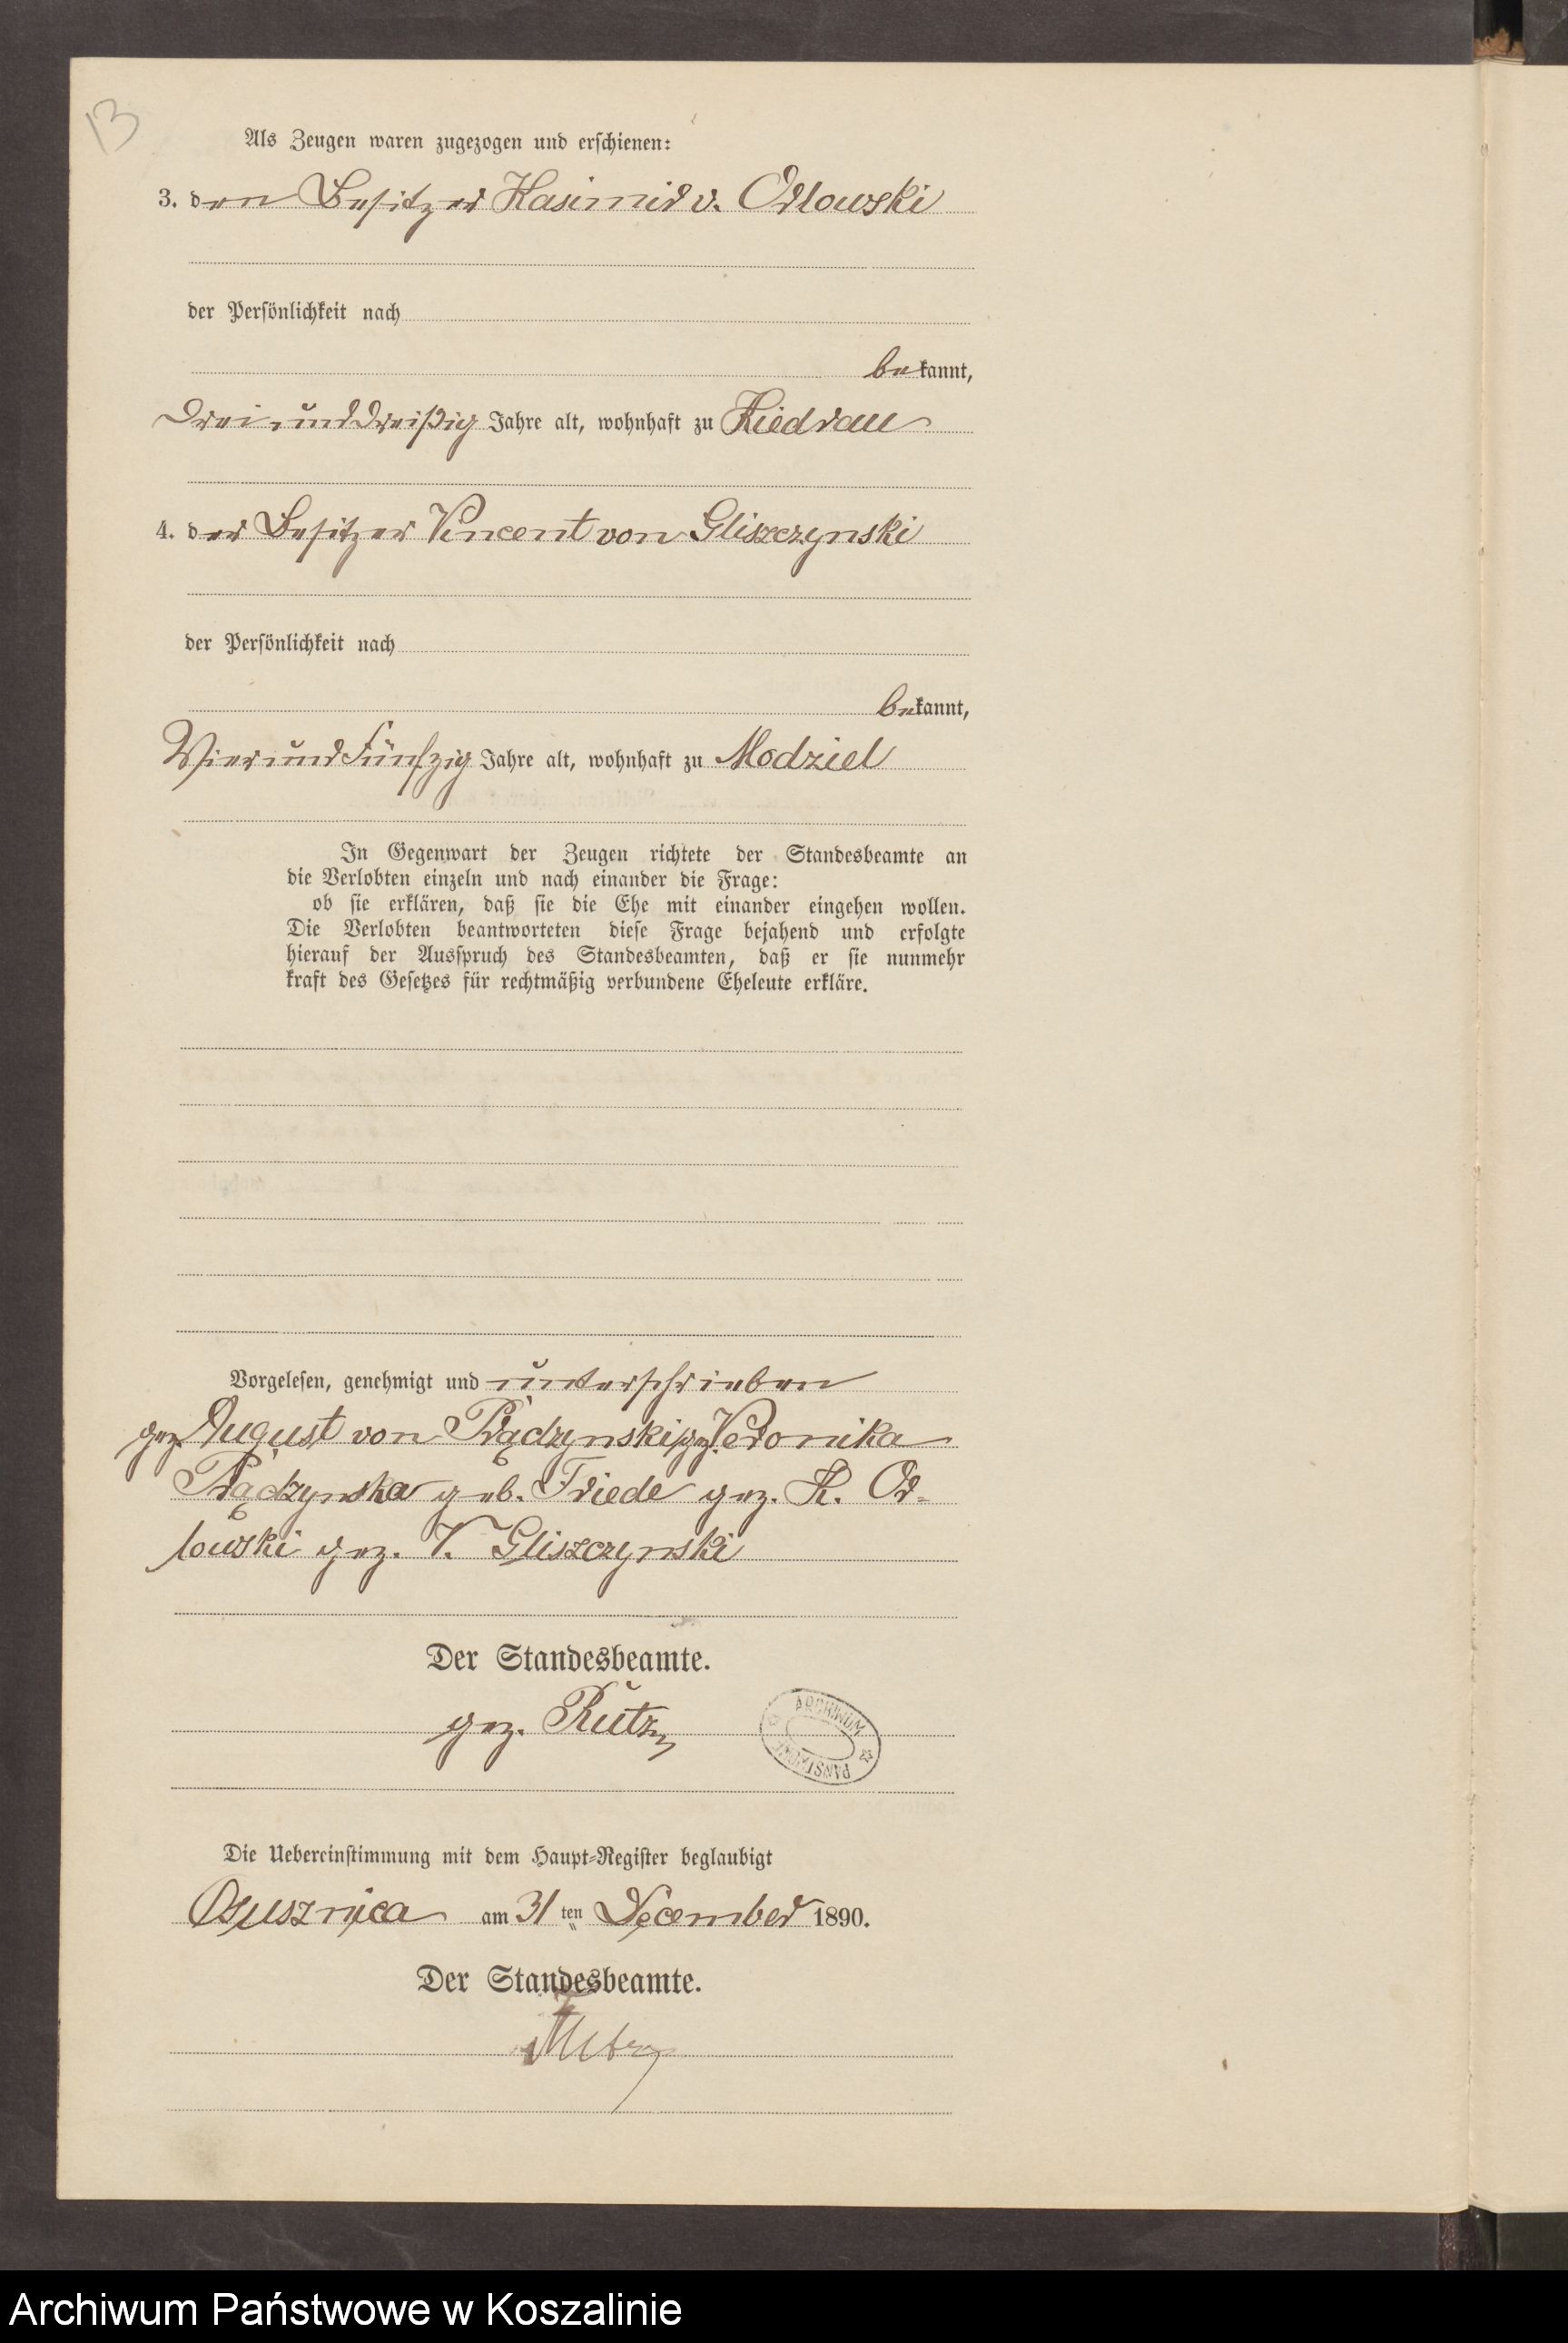 13
Als Zeugen waren zugezogen und erschienen:
3. den Besitzer Kasimir v. Orlowski
der Persönlichkeit nach
bekannt,
Dreiunddreißig Jahre alt, wohnhaft zu Kiedrau
4. der Besitzer Vincent von Gliszczynski
der Persönlichkeit nach
bekannt,
Vierundfünfzig Jahre alt, wohnhaft zu Modziel
In Gegenwart der Zeugen richtete der Standesbeamte an
die Verlobten einzeln und nach einander die Frage:
ob sie erklären, daß sie die Ehe mit einander eingehen wollen.
Die Verlobten beantworteten diese Frage bejahend und erfolgte
hierauf der Ausspruch des Standesbeamten, daß er sie nunmehr
kraft des Gesetzes für rechtmäßig verbundene Eheleute erkläre.
Vorgelesen, genehmigt und unterschrieben
gez. August von Prądzynski gez. Veronika
Prądzynska geb. Friede gez. K. Or-
lowski gez. V. Gliszczynski
Der Standesbeamte.
gez. Rutz
ARCHIWUM PAŃSTWOWE
Die Uebereinstimmung mit dem Haupt-Register beglaubigt
Osusznica am 31 ten December 1890.
Der Standesbeamte.
Archiwum Państwowe w Koszalinie